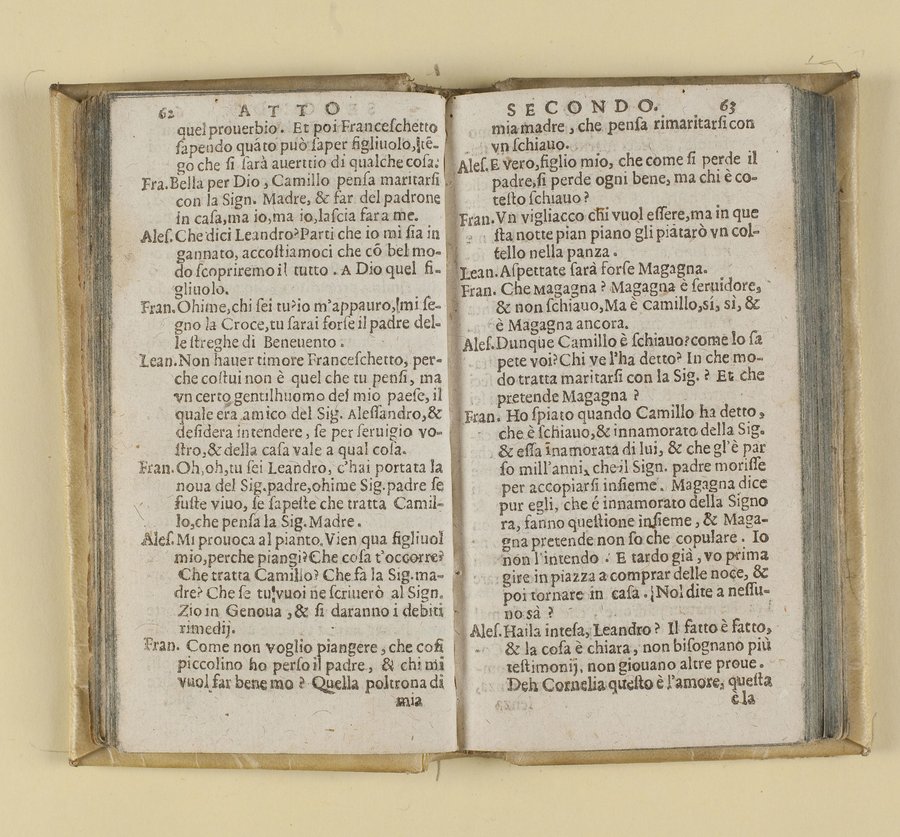 62 ATTO
quel prouerbio. Et poi Franceſchetto
ſapendo quāto può ſaper figliuolo, tē-
go che ſi ſarà auerttio di qualche coſa.
Fra. Bella per Dio, Camillo penſa maritarſi
con la Sign. Madre, & far del padrone
in caſa, ma io, ma io, laſcia fara me.
Aleſ. Che dici Leandro? Parti che io mi ſia in
gannato, accoſtiamoci che cō bel mo-
do ſcopriremo il tutto. A Dio quel fi-
gliuolo.
Fran. Ohime, chi ſei tu? io m'appauro, mi ſe-
gno la Croce, tu ſarai forſe il padre del-
le ſtreghe di Beneuento.
Lean. Non hauer timore Franceſchetto, per-
che coſtui non è quel che tu penſi, ma
vn certo gentilhuomo del mio paeſe, il
quale era amico del Sig. Aleſſandro, &
deſidera intendere, ſe per ſeruigio vo-
ſtro, & della caſa vale a qual coſa.
Fran. Oh, oh, tu ſei Leandro, c'hai portata la
noua del Sig. padre, ohime Sig. padre ſe
fuſte viuo, ſe ſapeſte che tratta Camil-
lo, che penſa la Sig. Madre.
Aleſ. Mi prouoca al pianto. Vien qua figliuol
mio, perche piangi? Che coſa t'occorre?
Che tratta Camillo? Che fà la Sig. ma-
dre? Che ſe tu vuoi ne ſcriuerò al Sign.
Zio in Genoua, & ſi daranno i debiti
rimedij.
Fran. Come non voglio piangere, che coſi
piccolino ho perſo il padre, & chi mi
vuol far bene mo? Quella poltrona di
mia
SECONDO. 63
mia madre, che penſa rimaritarſi con
vn ſchiauo.
Aleſ. E vero, figlio mio, che come ſi perde il
padre, ſi perde ogni bene, ma chi è co-
teſto ſchiauo?
Fran. Vn vigliacco chi vuol eſſere, ma in que
ſta notte pian piano gli piātarò vn col-
tello nella panza.
Lean. Aſpettate ſarà forſe Magagna.
Fran. Che Magagna? Magagna è ſeruidore,
& non ſchiauo, Ma è Camillo, sí, sì, &
è Magagna ancora.
Aleſ. Dunque Camillo è ſchiauo? come lo ſa
pete voi? Chi ve l'ha detto? In che mo-
do tratta maritarſi con la Sig.? Et che
pretende Magagna?
Fran. Ho ſpiato quando Camillo ha detto,
che è ſchiauo, & innamorato della Sig.
& eſſa inamorata di lui, & che gl'è par
ſo mill'anni, che il Sign. padre moriſſe
per accopiarſi inſieme. Magagna dice
pur egli, che é innamorato della Signo
ra, fanno queſtione inſieme, & Maga-
gna pretende non ſo che copulare. Io
non l'intendo. E tardo già, vo prima
gire in piazza a comprar delle noce, &
poi tornare in caſa. Nol dite a neſſu-
no sà?
Aleſ. Haila inteſa, Leandro? Il fatto è fatto,
& la coſa è chiara, non biſognano più
teſtimonij, non giouano altre proue.
Deh Cornelia queſto è l'amore, queſta
è la